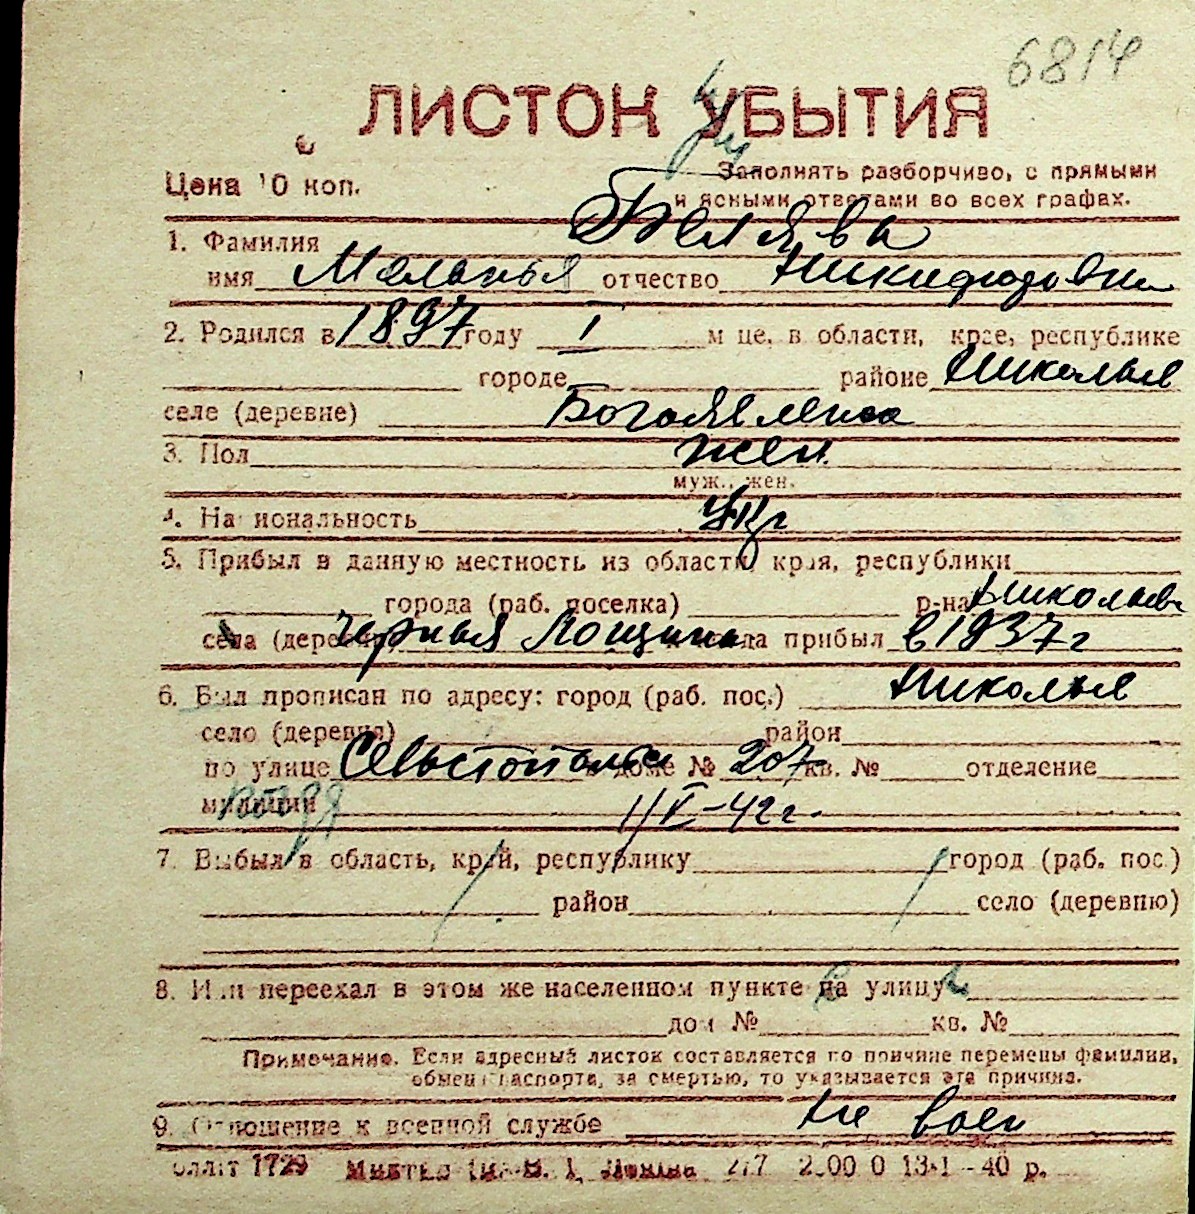 6814
ЛИСТОК УБЫТИЯ
Цена 10 коп.
Заполнять разборчиво, с прямыми
и ясными ответами во всех графах.
1. Фамилия Белява
имя Меланья отчество Никифоровна
2. Родился в 1897 году I м-це, в области, крае, республике
городе районе Николаев
селе (деревне) Богоявленка
3. Пол жен.
муж., жен.
4. Национальность укр
5. Прибыл в данную местность из области, края, республики
города (раб. поселка) р-на Николаев
села (деревни) Черная Лощина когда прибыл в 1937 г
6. Был прописан по адресу: город (раб. пос.) Николаев
село (деревня) район
по улице Севастопольск доме № 207 кв. № отделение
милиции 1/V-42 г.
7. Выбыл в область, край, республику город (раб. пос.)
район село (деревню)
8. Или переехал в этом же населенном пункте на улицу
дом № кв. №
Примечание. Если адресный листок составляется по причине перемены фамилии,
обмен паспорта, за смертью, то указывается эта причина.
9. Отношение к военной службе не воен
1729 Ленина 13-1-40 р.